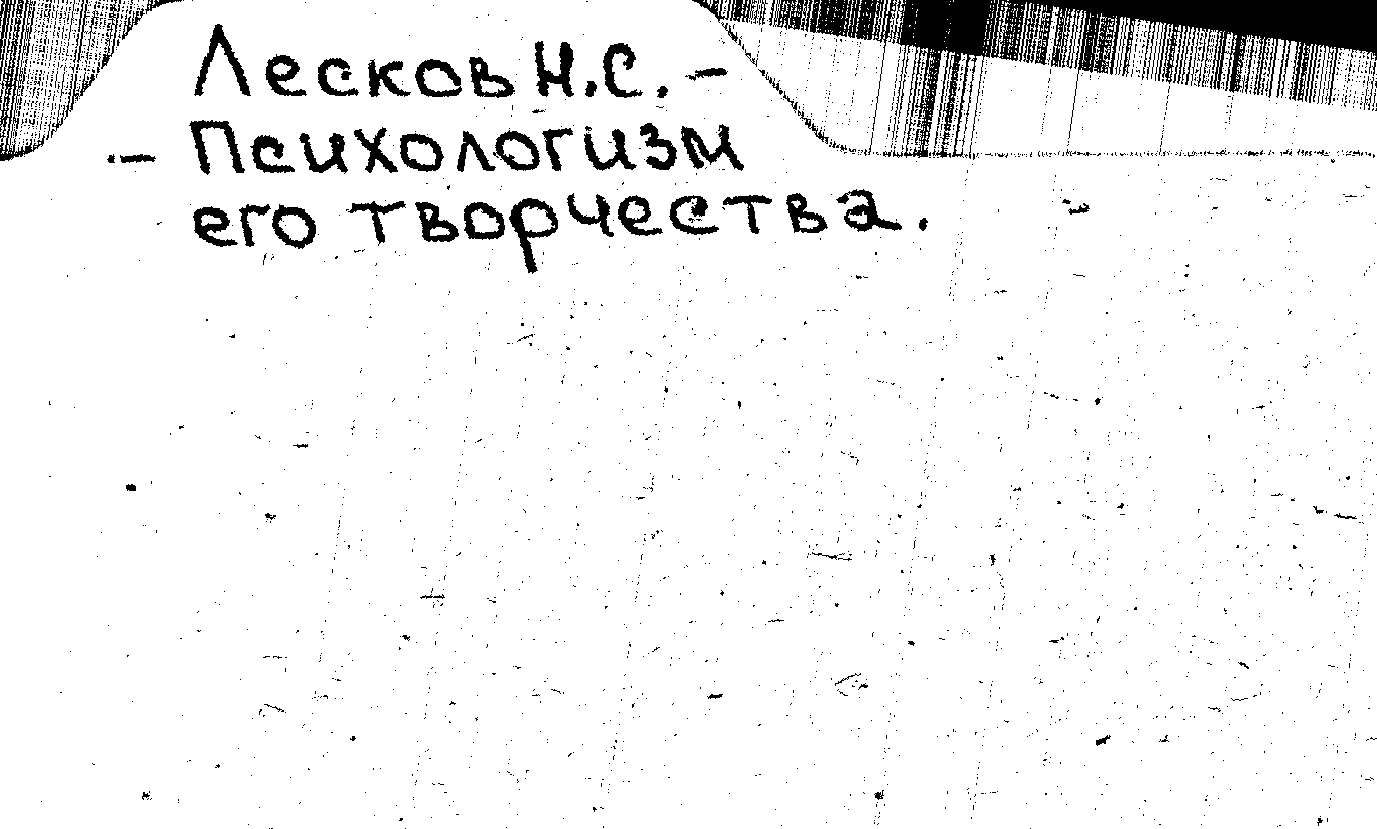 Лесков Н.С. –
– Психологизм
его творчества.